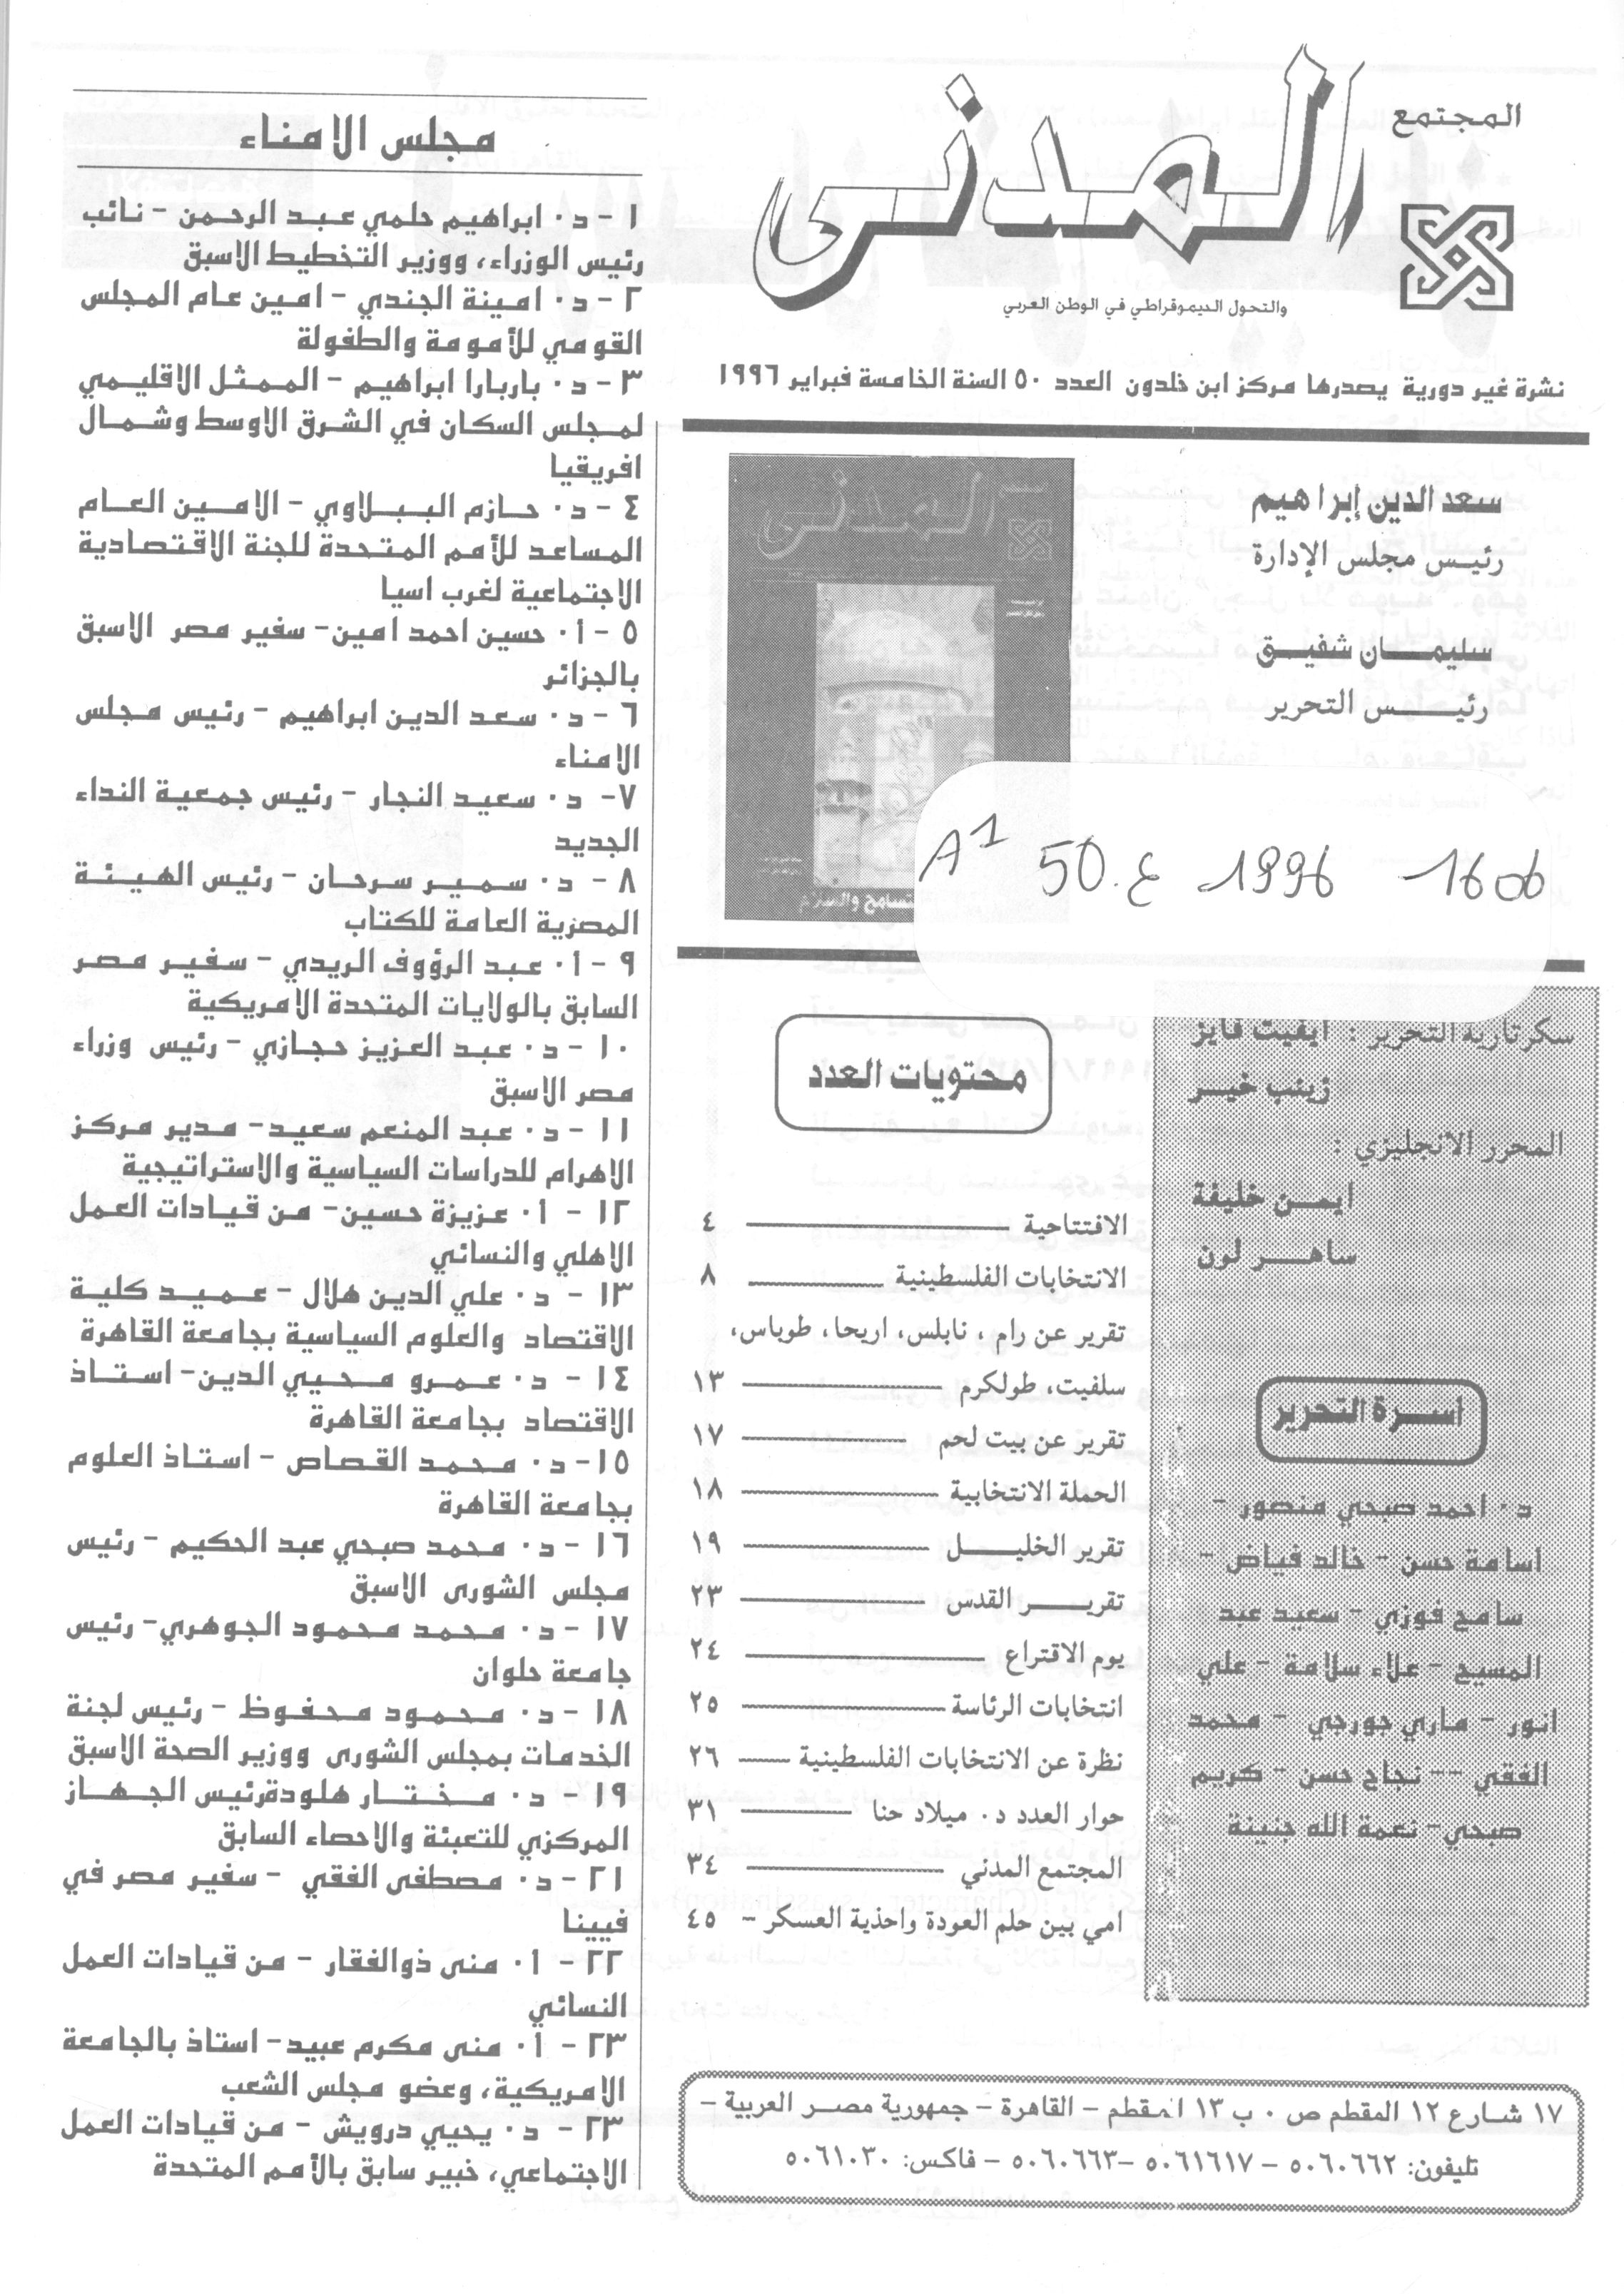 المجتمع
المدنى
والتحول الديموقراطي في الوطن العربي
نشرة غير دورية يصدرها مركز ابن خلدون العدد ٥٠ السنة الخامسة فبراير ١٩٩٦
سعد الدين إبراهيم
رئيس مجلس الإدارة
سليمان شفيق
رئيس التحرير
المدنى
A1 50.ع 1996 1606
سكرتارية التحرير : ايفيت فايز
زينب خير
المحرر الانجليزي :
ايمن خليفة
ساهر لون
اسرة التحرير
د٠ احمد صبحي منصور -
اسامة حسن - خالد فياض -
سامح فوزي - سعيد عبد
المسيح - علاء سلامة - علي
انور - ماري جورجي - محمد
الفقي -- نجاح حسن - كريم
صبحي- نعمة الله جنينة
محتويات العدد
الافتتاحية ٤
الانتخابات الفلسطينية ٨
تقرير عن رام ، نابلس، اريحا، طوباس،
سلفيت، طولكرم ١٣
تقرير عن بيت لحم ١٧
الحملة الانتخابية ١٨
تقرير الخليل ١٩
تقرير القدس ٢٣
يوم الاقتراع ٢٤
انتخابات الرئاسة ٢٥
نظرة عن الانتخابات الفلسطينية ٢٦
حوار العدد د٠ ميلاد حنا ٣١
المجتمع المدني ٣٤
امي بين حلم العودة واحذية العسكر - ٤٥
١٧ شارع ١٢ المقطم ص ٠ ب ١٣ المقطم - القاهرة - جمهورية مصر العربية -
تليفون: ٥٠٦٠٦٦٢ - ٥٠٦١٦١٧ -٥٠٦٠٦٦٣ - فاكس: ٥٠٦١٠٣٠
مجلس الامناء
١ - د٠ ابراهيم حلمي عبد الرحمن - نائب
رئيس الوزراء، ووزير التخطيط الاسبق
٢ - د٠ امينة الجندي - امين عام المجلس
القومي للأمومة والطفولة
٣ - د٠ باربارا ابراهيم - الممثل الاقليمي
لمجلس السكان في الشرق الاوسط وشمال
افريقيا
٤ - د٠ حازم الببلاوي - الامين العام
المساعد للأمم المتحدة للجنة الاقتصادية
الاجتماعية لغرب اسيا
٥ - أ٠ حسين احمد امين- سفير مصر الاسبق
بالجزائر
٦ - د٠ سعد الدين ابراهيم - رئيس مجلس
الامناء
٧- د٠ سعيد النجار - رئيس جمعية النداء
الجديد
٨ - د٠ سمير سرحان - رئيس الهيئة
المصزية العامة للكتاب
٩ - أ٠ عبد الرؤوف الريدي - سفير مصر
السابق بالولايات المتحدة الامريكية
١٠ - د٠ عبد العزيز حجازي - رئيس وزراء
مصر الاسبق
١١ - د٠ عبد المنعم سعيد- مدير مركز
الاهرام للدراسات السياسية والاستراتيجية
١٢ - أ٠ عزيزة حسين- من قيادات العمل
الاهلي والنسائي
١٣ - د٠ علي الدين هلال - عميد كلية
الاقتصاد والعلوم السياسية بجامعة القاهرة
١٤ - د٠ عمرو محيي الدين- استاذ
الاقتصاد بجامعة القاهرة
١٥- د٠ محمد القصاص - استاذ العلوم
بجامعة القاهرة
١٦ - د٠ محمد صبحي عبد الحكيم - رئيس
مجلس الشورى الاسبق
١٧ - د٠ محمد محمود الجوهري- رئيس
جامعة حلوان
١٨ - د٠ محمود محفوظ - رئيس لجنة
الخدمات بمجلس الشورى ووزير الصحة الاسبق
١٩ - د٠ مختار هلودةرئيس الجهاز
المركزي للتعبئة والاحصاء السابق
٢١ - د٠ مصطفى الفقي - سفير مصر في
فيينا
٢٢ - أ٠ منى ذوالفقار - من قيادات العمل
النسائي
٢٣ - أ٠ منى مكرم عبيد- استاذ بالجامعة
الامريكية، وعضو مجلس الشعب
٢٣ - د٠ يحيي درويش - من قيادات العمل
الاجتماعي، خبير سابق بالأمم المتحدة